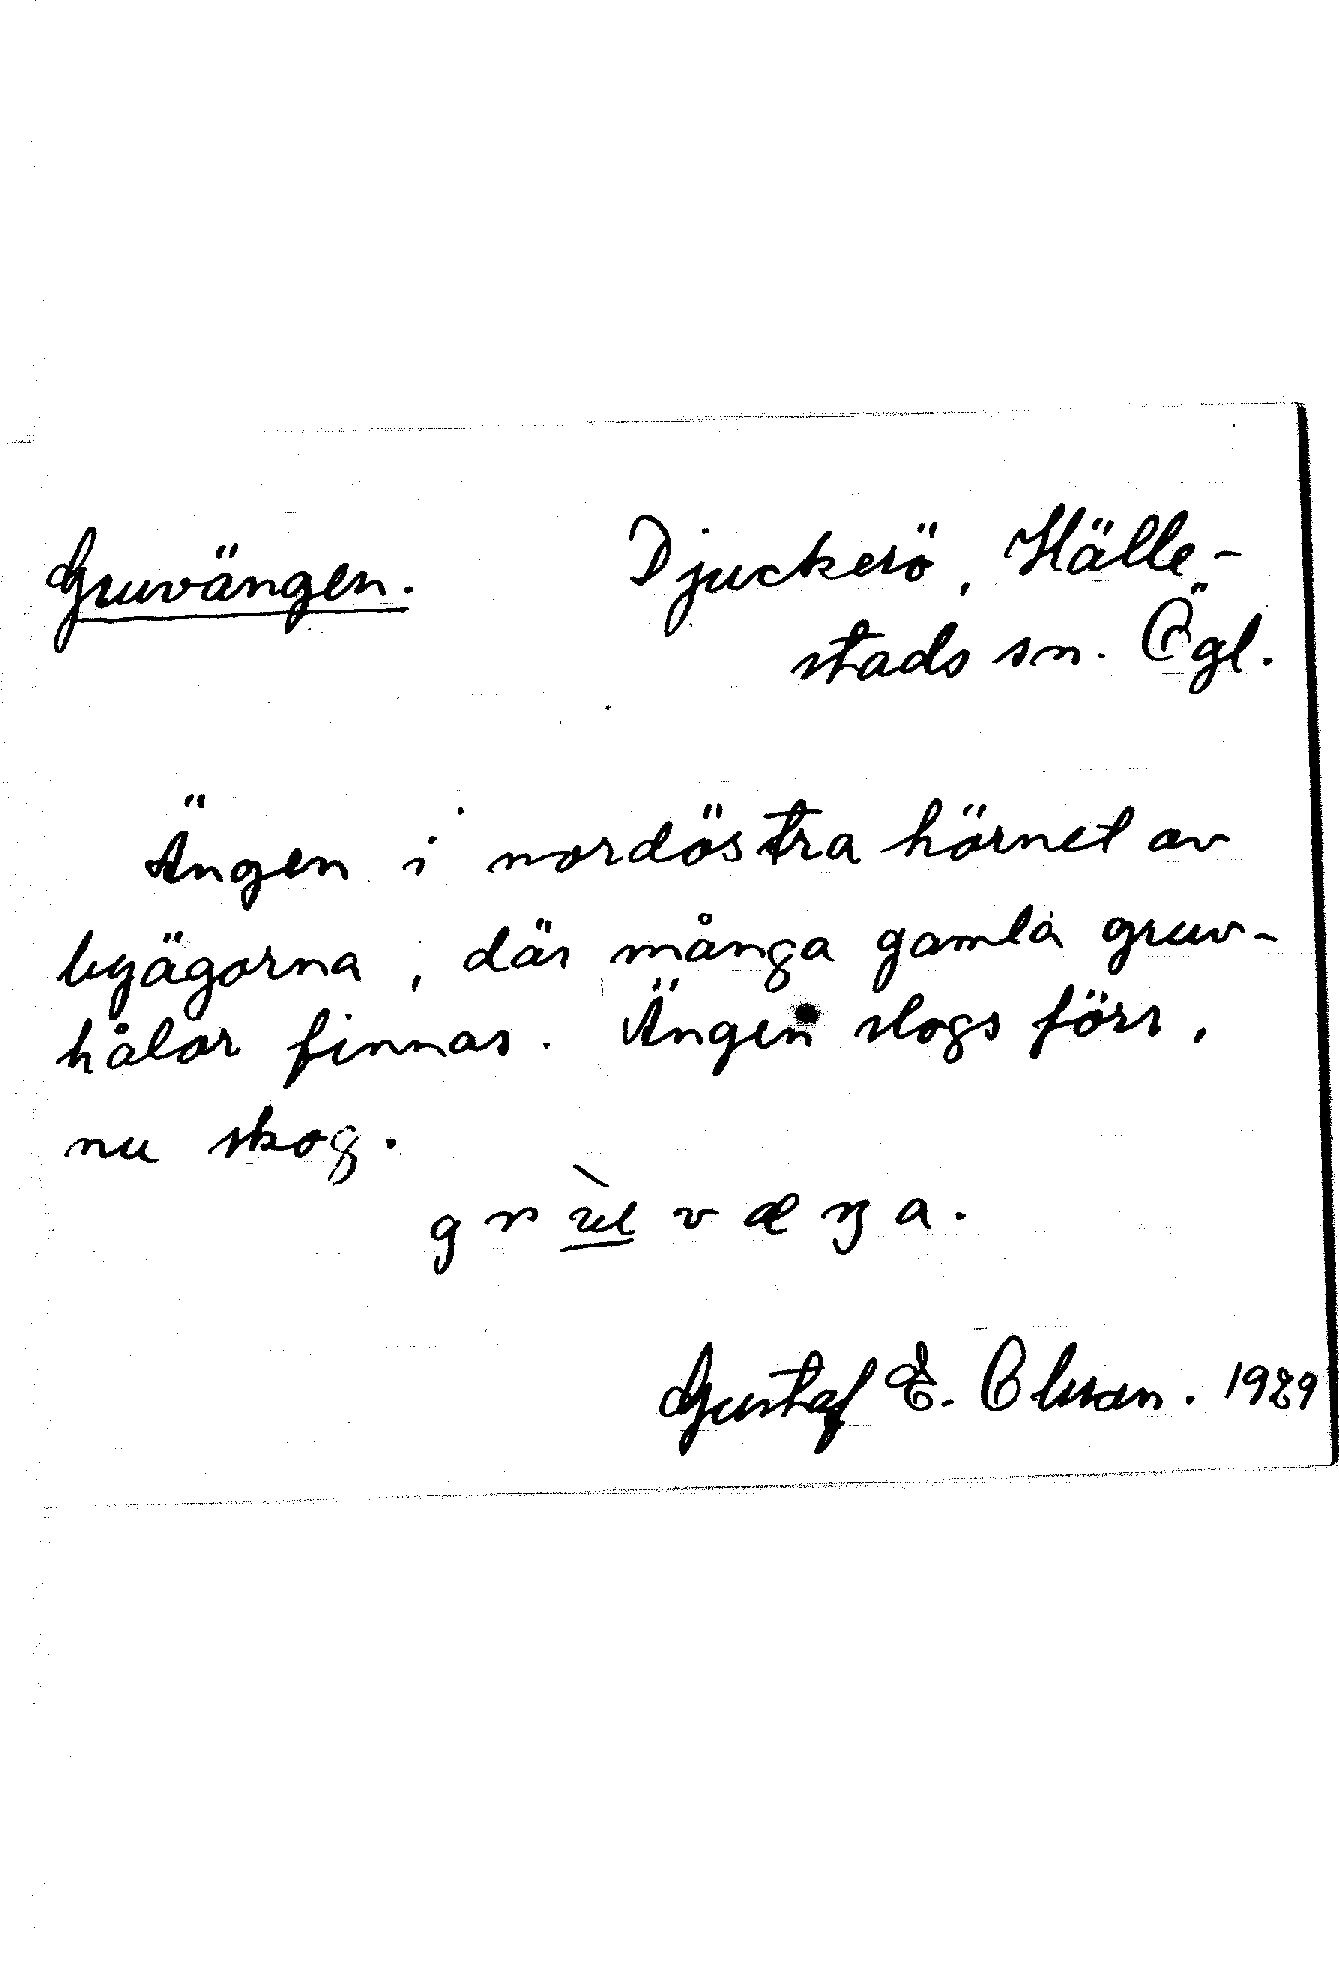 Gruvängen. Djuckerö, Hälle-
stads sn. Ögl.
Ängen i nordöstra hörnet av
byägorna, där många gamla gruv-
hålor finnas. Ängen slogs förr,
nu skog.
g r ù v æ ŋ a.
Gustaf E. Olsson. 1929